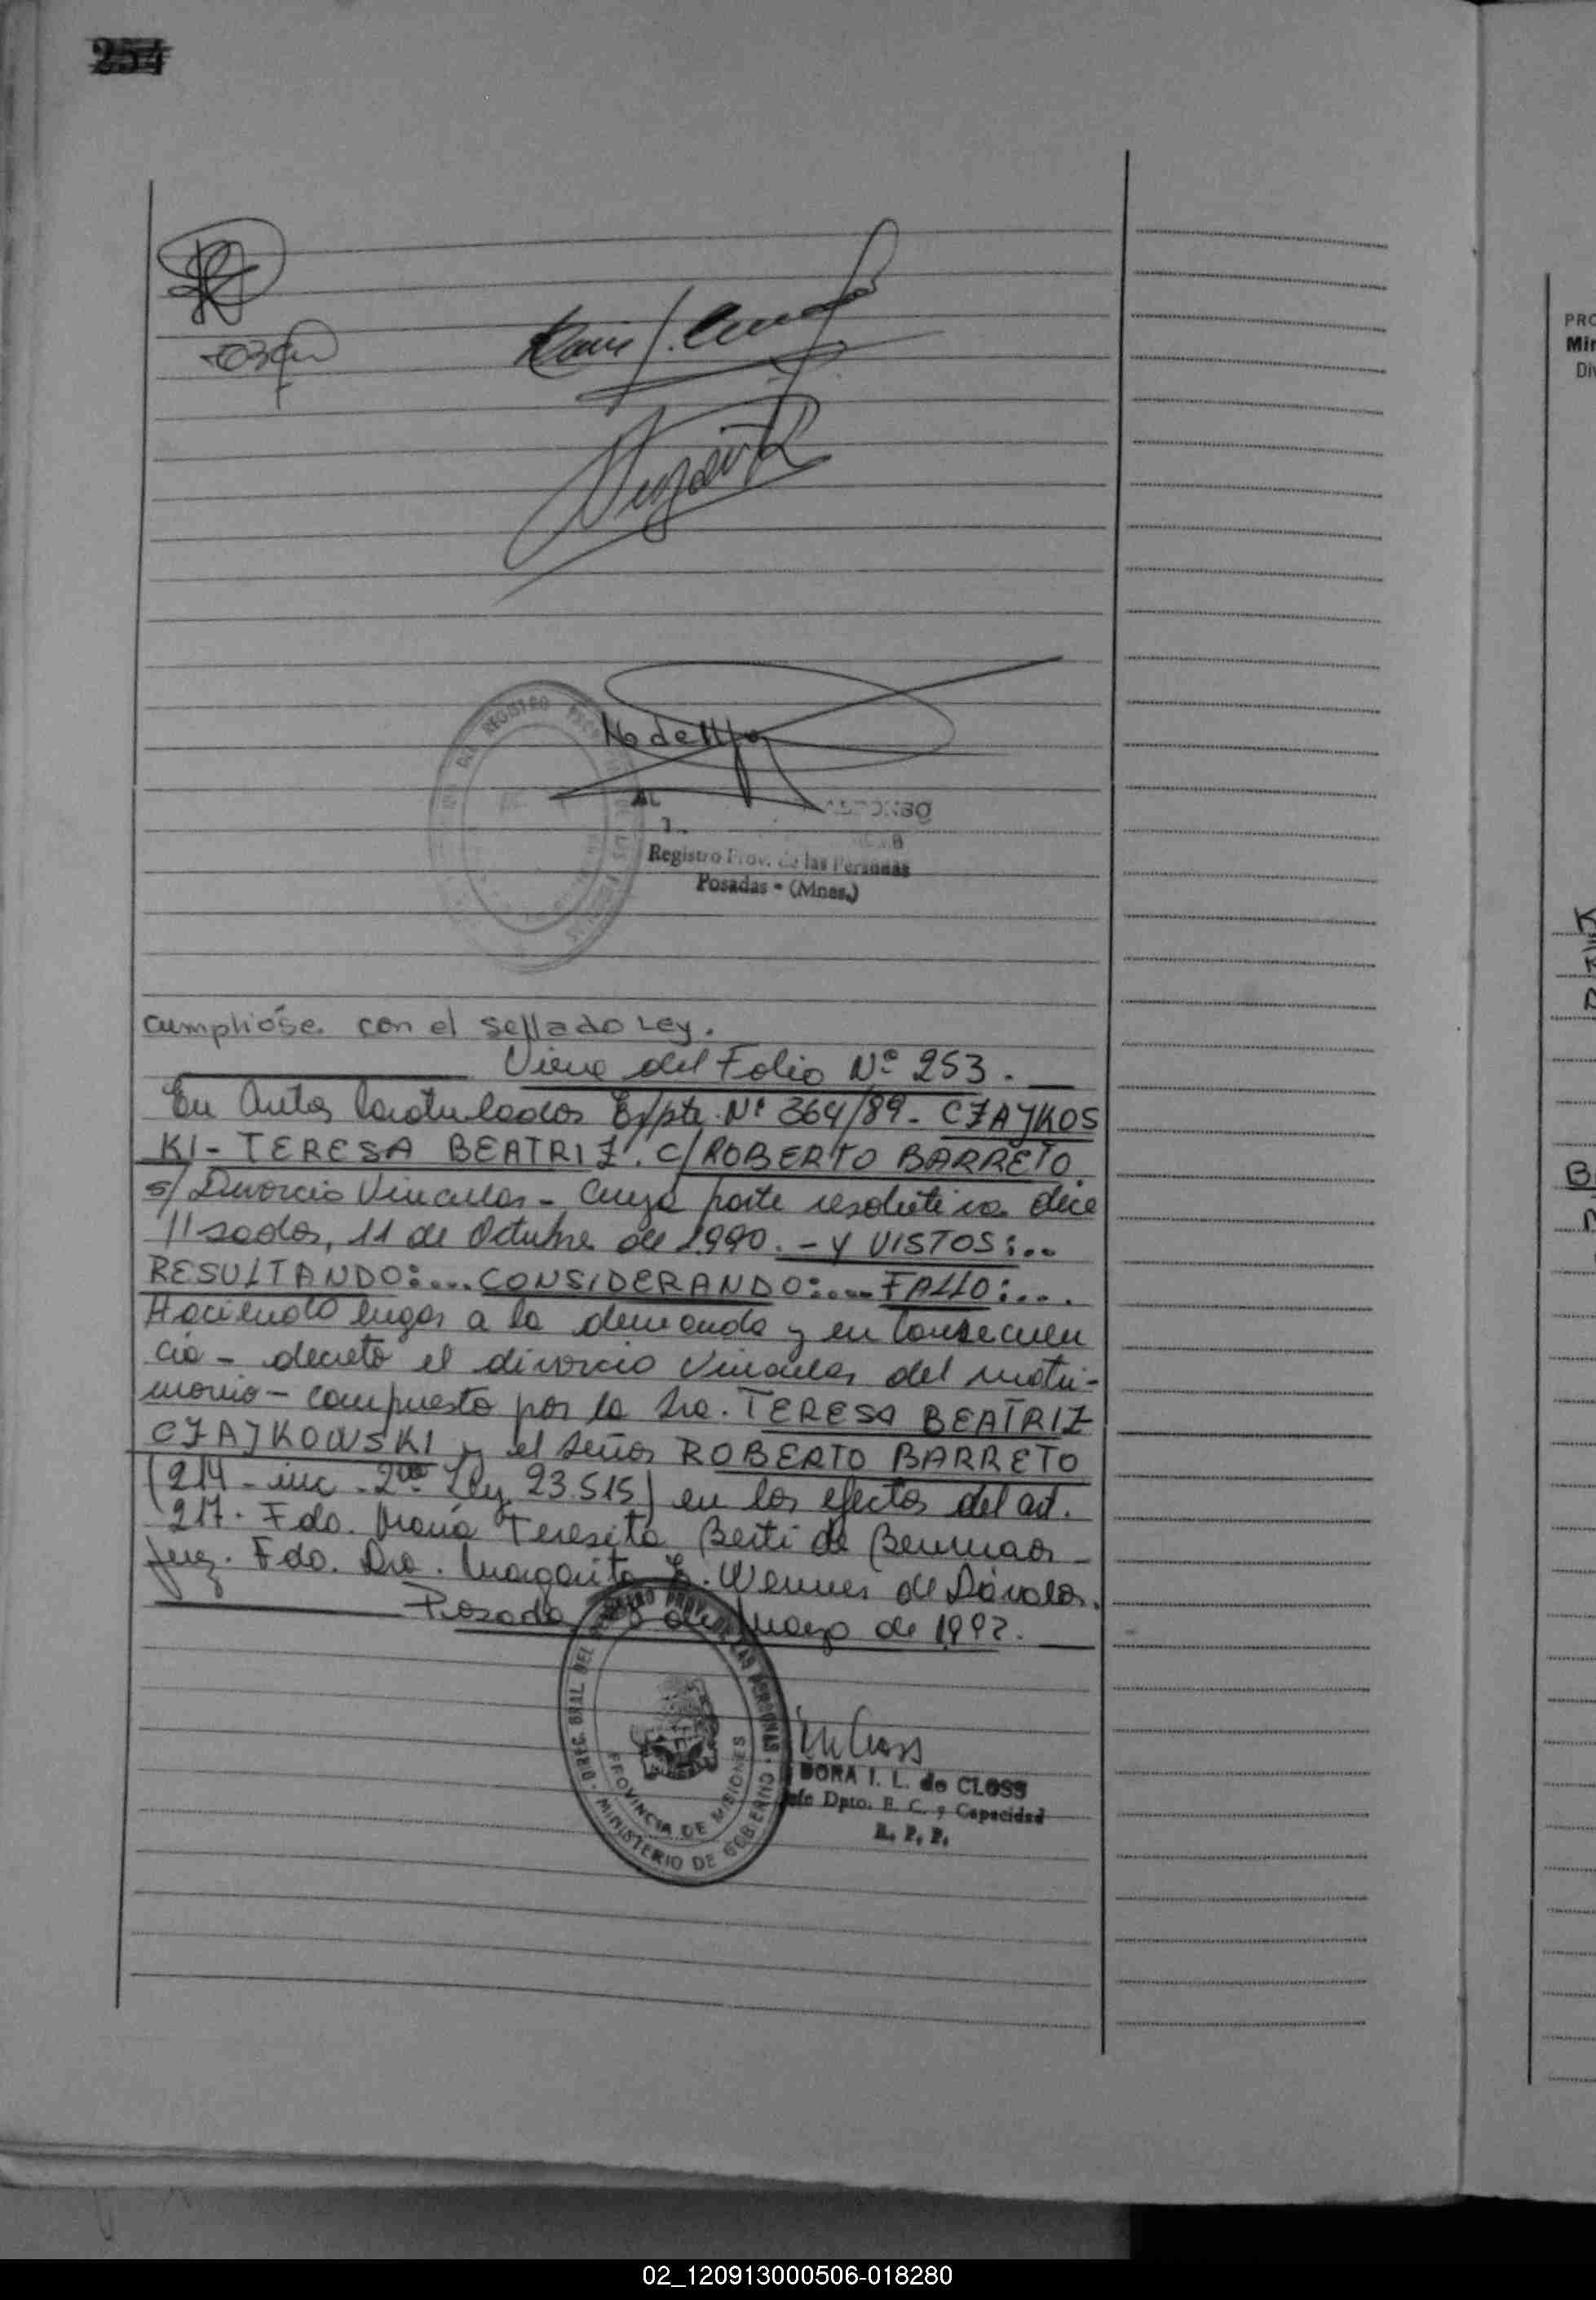 254
Cumplióse. con el sellado Ley.
Viene del Folio Nº 253.
En Autos Caratulados Expte. Nº 364/89 - CZAJKOS
KI - TERESA BEATRIZ. C/ROBERTO BARRETO
s/ Divorcio Vincular - Cuya parte resolutiva dice
//sadas, 11 de Octubre de 1.990. - Y VISTOS:...
RESULTANDO:... CONSIDERANDO:... FALLO:...
Haciendo lugar a la demanda y en Consecuen
cia - decreto el divorcio Vincular del matri-
monio - compuesto por la Sra. TERESA BEATRIZ
CZAJKOWSKI y el señor ROBERTO BARRETO
(214 - inc - 2do Ley 23.515) en los efectos del art.
217. Fdo. María Teresita Berti de
Juez. Fdo. Dra. Margarita E. Wenner de Dávalos.
Posadas de Marzo de 1992.
Registro Prov. de las Personas
Posadas - (Mnes.)
DIREC. GRAL DEL REGISTRO PROV. DE LAS PERSONAS
PROVINCIA DE MISIONES
MINISTERIO DE GOBIERNO
DORA I. L. de CLOSS
Jefe Dpto. E. C. y Capacidad
R. P. P.
PRO
Min
Div
02_120913000506-018280